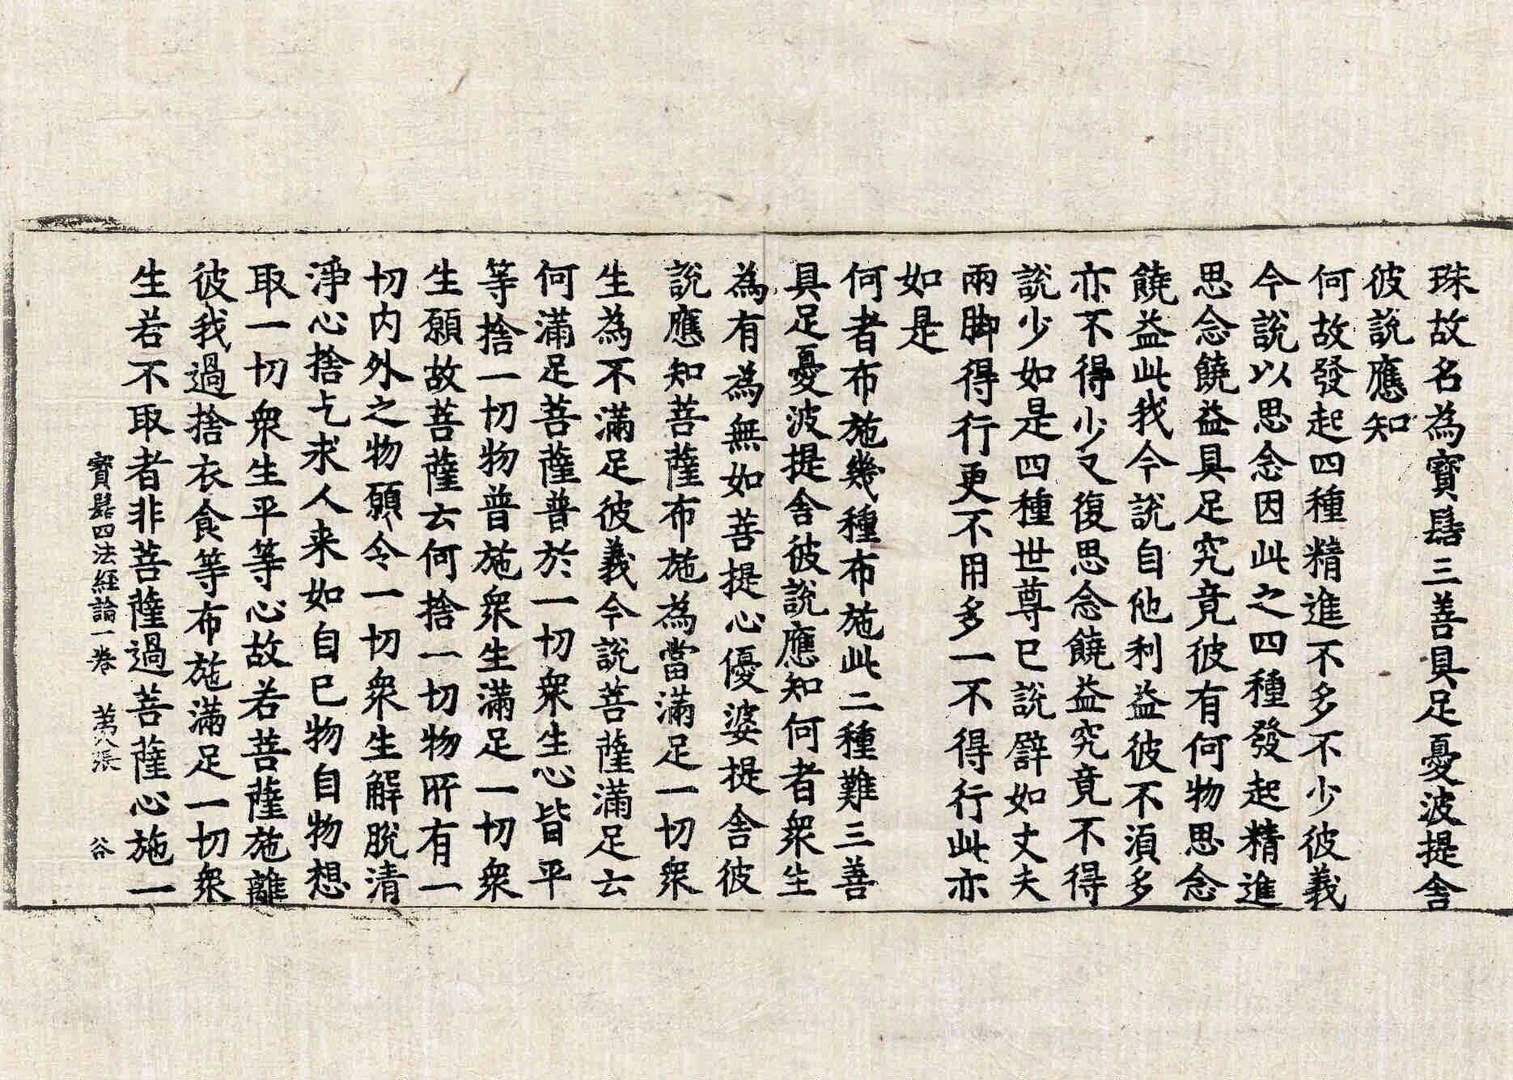 珠故名為寶髻三善具足憂波提舍
彼說應知
何故發起四種精進不多不少彼義
今說以思念因此之四種發起精進
思念饒益具足究竟彼有何物思念
饒益此我今說自他利益彼不湏多
亦不得少又復思念饒益究竟不得
說少如是四種世尊已說譬如丈夫
兩脚得行更不用多一不得行此亦
如是
何者布施幾種布施此二種難三善
具足憂波提舍彼說應知何者眾生
為有為無如菩提心優婆提舍彼
說應知菩薩布施為當滿足一切眾
生為不滿足彼義今說菩薩滿足云
何滿足菩薩普於一切眾生心皆平
等捨一切物普施眾生滿足一切眾
生願故菩薩云何捨一切物所有一
切內外之物願令一切眾生解脫清
淨心捨乞求人来如自已物自物想
取一切眾生平等心故若菩薩施離
彼我過捨衣食等布施滿足一切眾
生若不取者非菩薩過菩薩心施一
寶髻四法經論一卷 第八張 谷